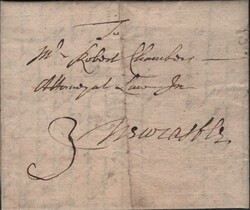 To
Mr Robert Chambers
Attorney at Law In
3 Newcastle